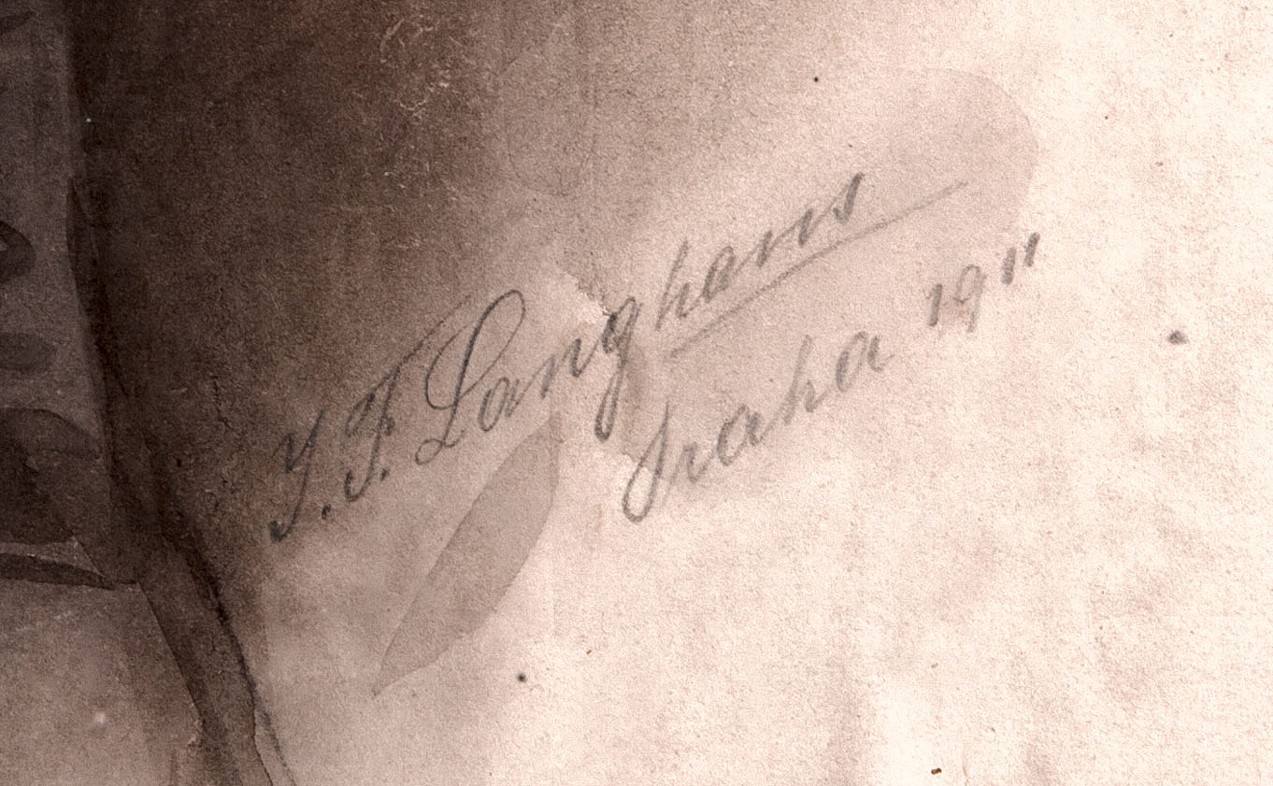 J. F. Langhans
Praha 1911